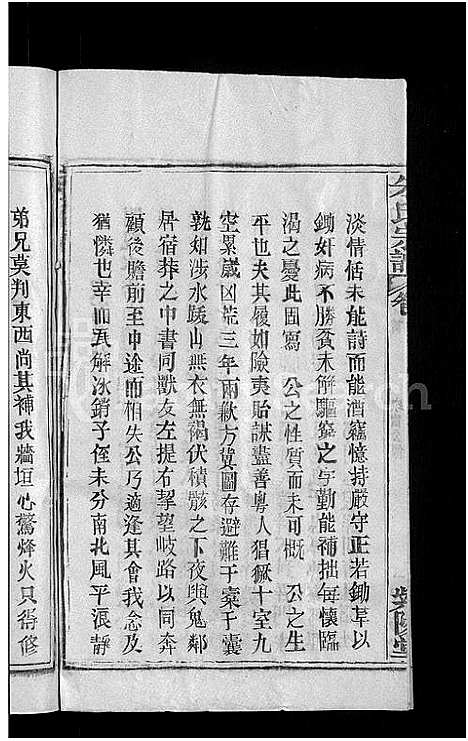 朱氏宗譜
紫陽堂
淡情恬未能詩而能酒竊憶持嚴守正若鋤草以
鋤奸病不勝貧未解驅窮之与勤能補拙每懷臨
渴之憂此固寫 公之性質而未可概 公之生
平也夫其履如險夷貽謀盡善粵人猖獗十室九
空累歲凶荒三年兩歉方冀圖存避難于橐于囊
孰知涉水踐山無衣無褐伏積骸之下夜與鬼鄰
居宿莽之中書同獸友左提右挈望岐路以同奔
顧後瞻前至中途而相失公乃適逢其會我念及
猶憐也幸而瓦解冰銷子侄未分南北風平浪靜
弟兄莫判東西尚其補我牆垣心驚烽火只喬修